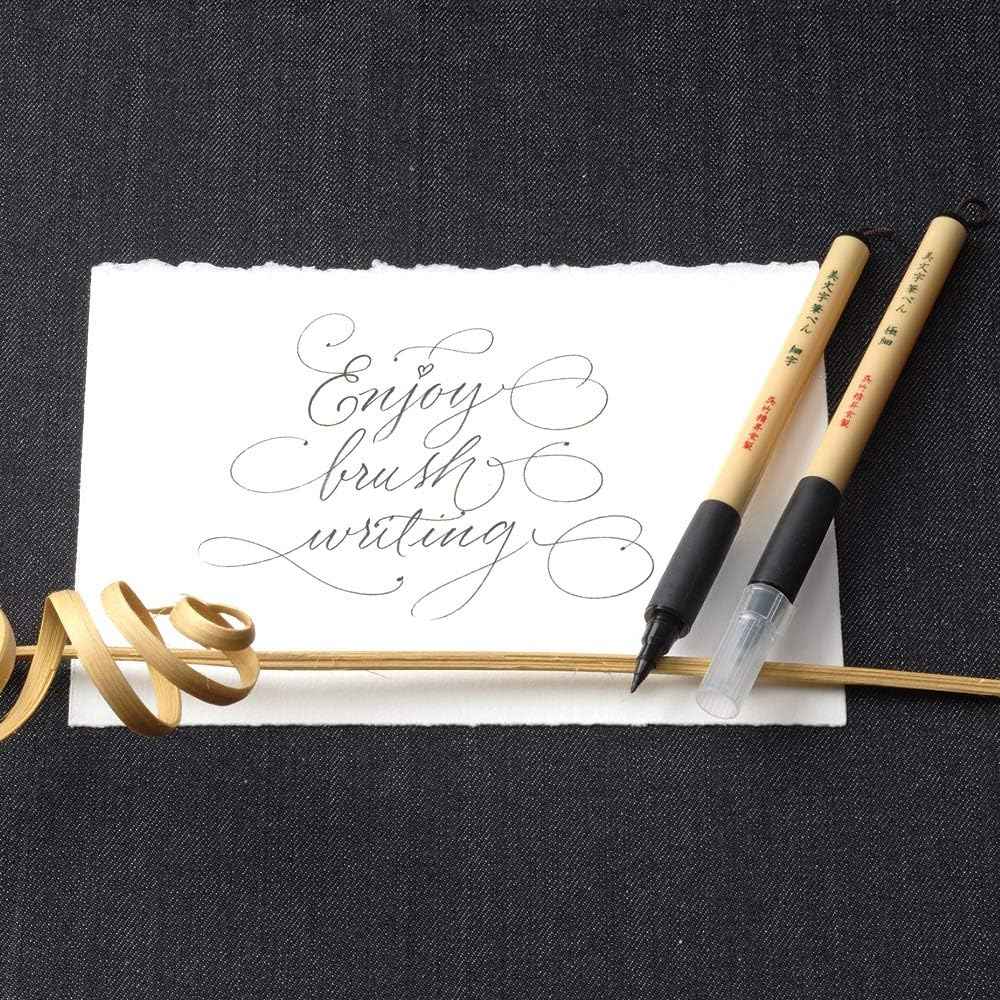 Enjoy
brush
writing
美文字筆ぺん 細字
呉竹精昇堂製
美文字筆ぺん 極細
呉竹精昇堂製